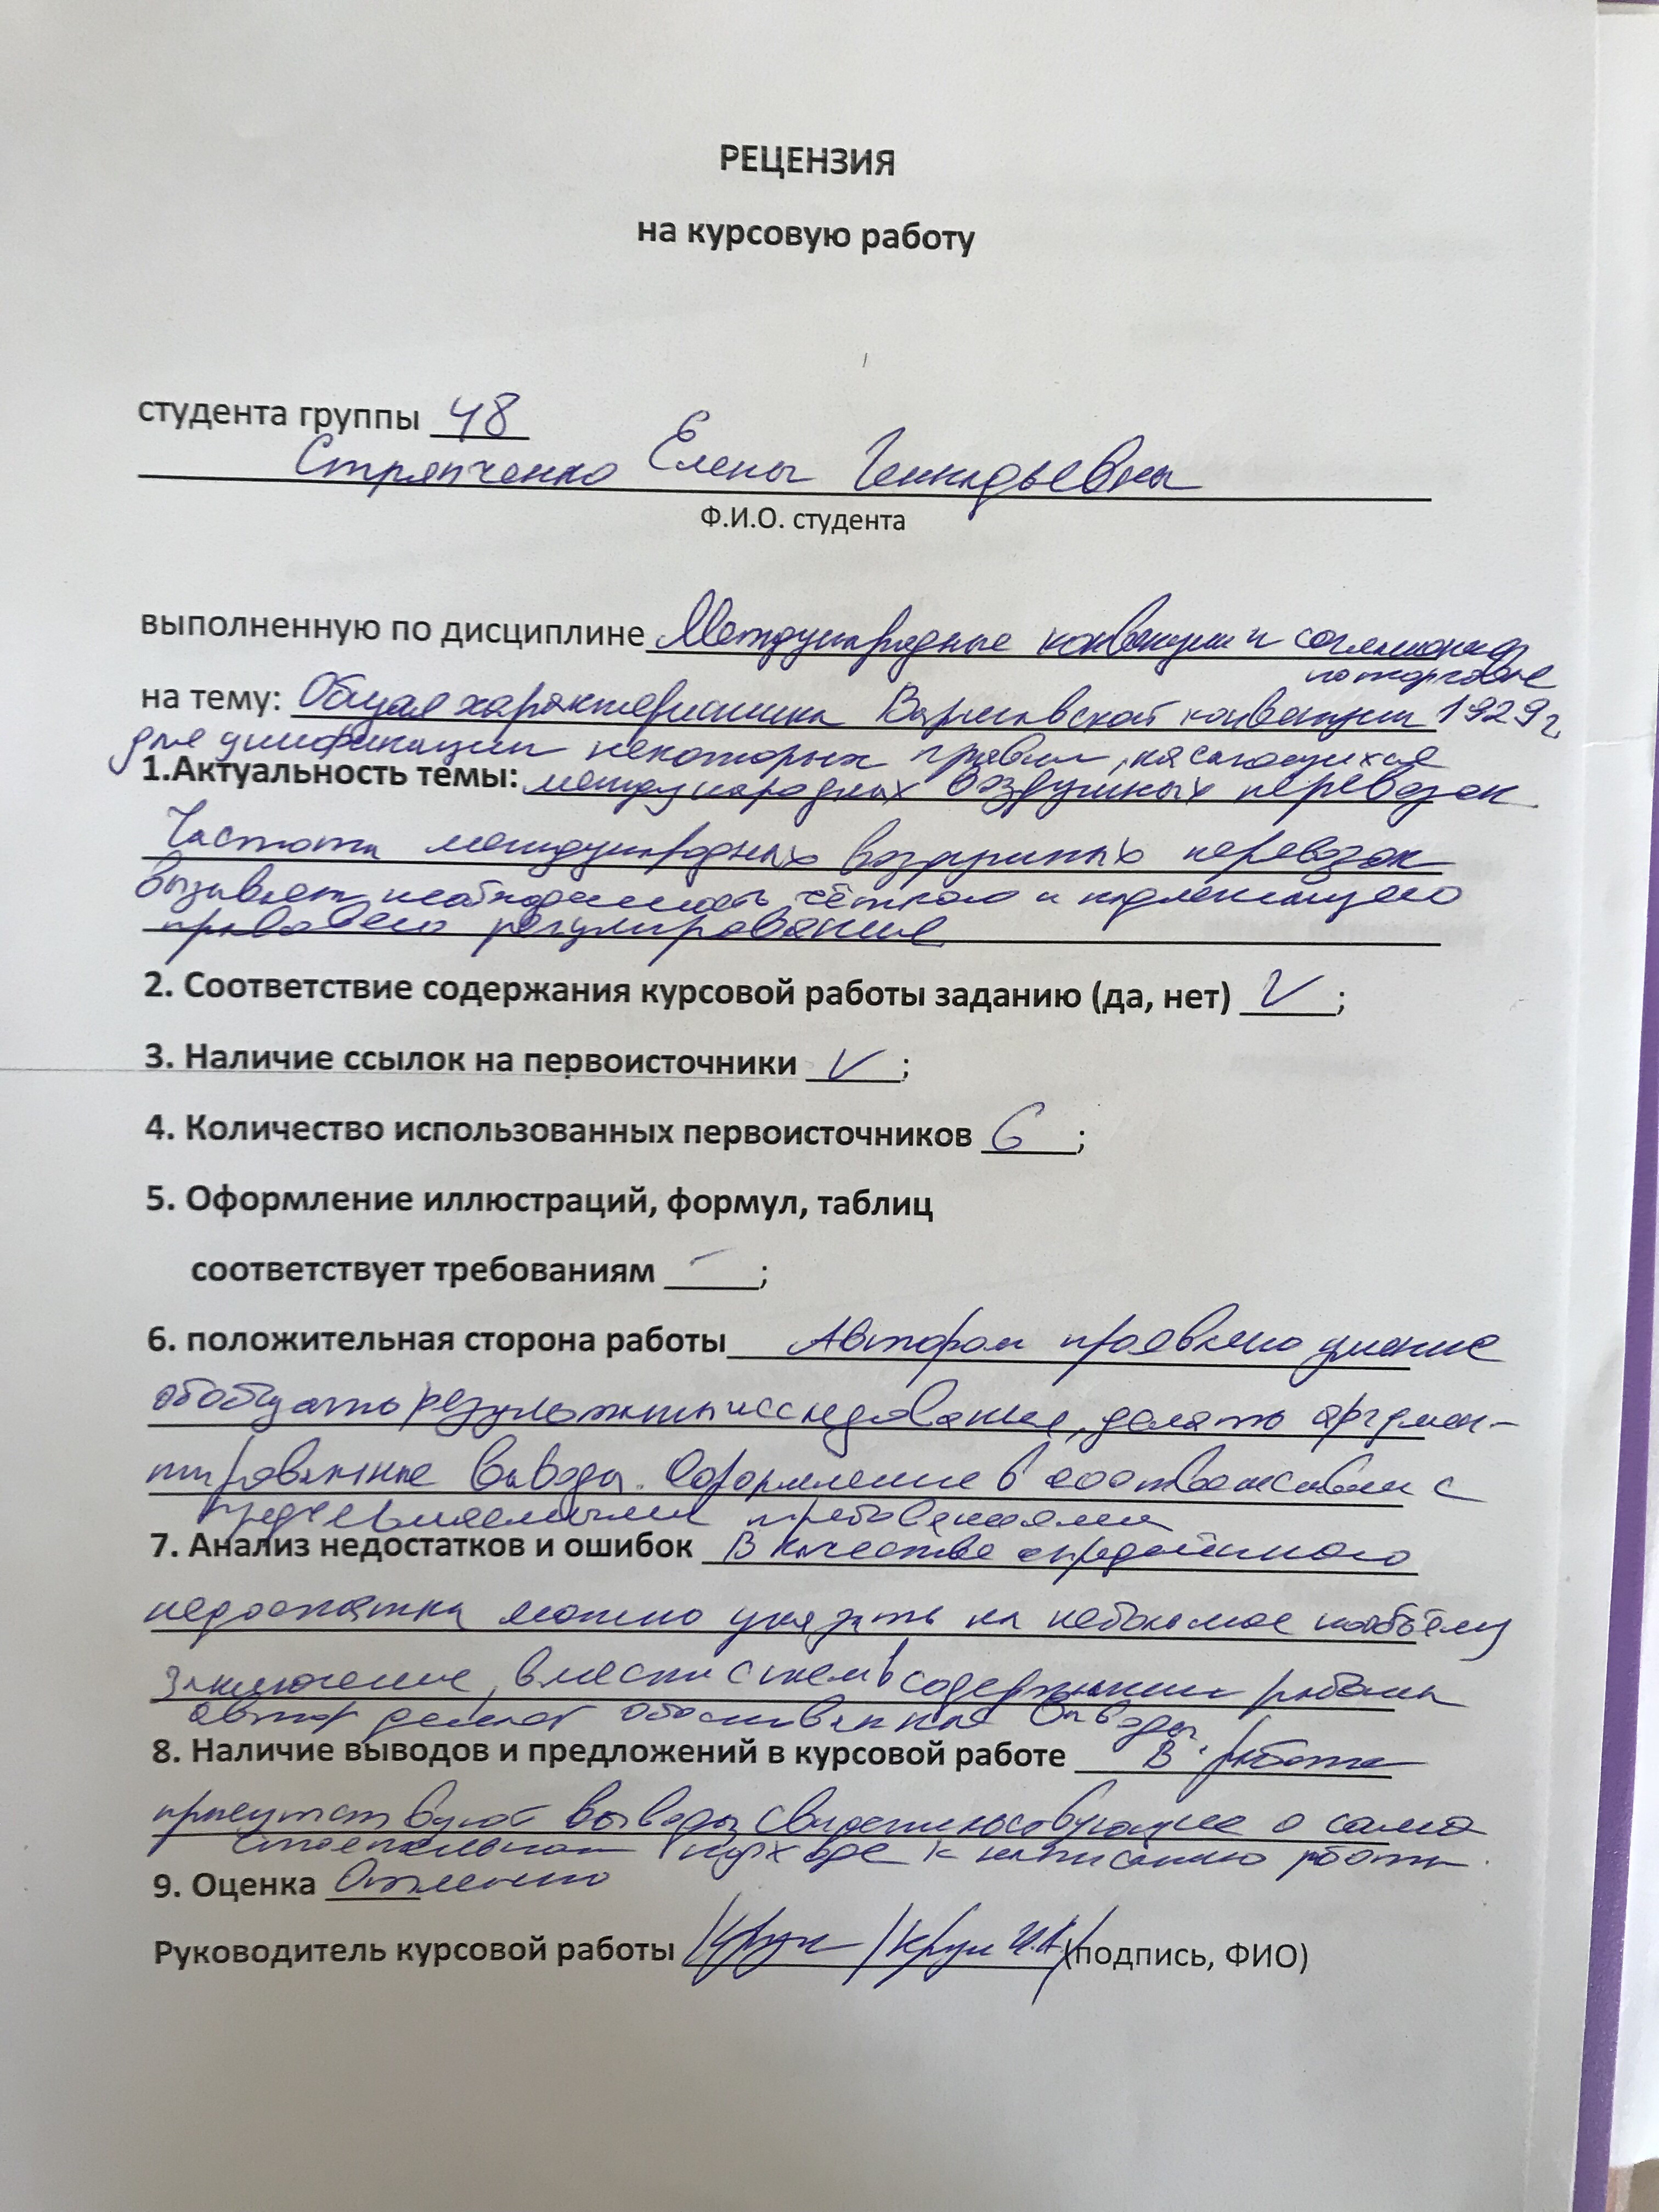 РЕЦЕНЗИЯ
на курсовую работу
студента группы 48
Стряпченко Елены Геннадьевны
Ф.И.О. студента
выполненную по дисциплине Международные конвенции и соглашения
по торговле
на тему: Общая характеристика Варшавской конвенции 1929 г.
для унификации некоторых правил, касающихся
1.Актуальность темы: международных воздушных перевозок
Частота международных воздушных перевозок
вызывает необходимость чёткого и надлежащего
правового регулирования
2. Соответствие содержания курсовой работы заданию (да, нет) V;
3. Наличие ссылок на первоисточники V;
4. Количество использованных первоисточников 6;
5. Оформление иллюстраций, формул, таблиц
соответствует требованиям –;
6. положительная сторона работы Автором проявлено умение
обобщать результаты исследования, делать аргумен-
тированные выводы. Оформление в соответствии с
предъявляемыми требованиями
7. Анализ недостатков и ошибок В качестве
недостатка можно указать на небольшое по объёму
заключение, вместе с тем в содержании работы
автор делает обоснованные выводы
8. Наличие выводов и предложений в курсовой работе В работе
присутствуют выводы свидетельствующие о само
стоятельном подходе к написанию работы.
9. Оценка Отлично
Руководитель курсовой работы (подпись, ФИО)